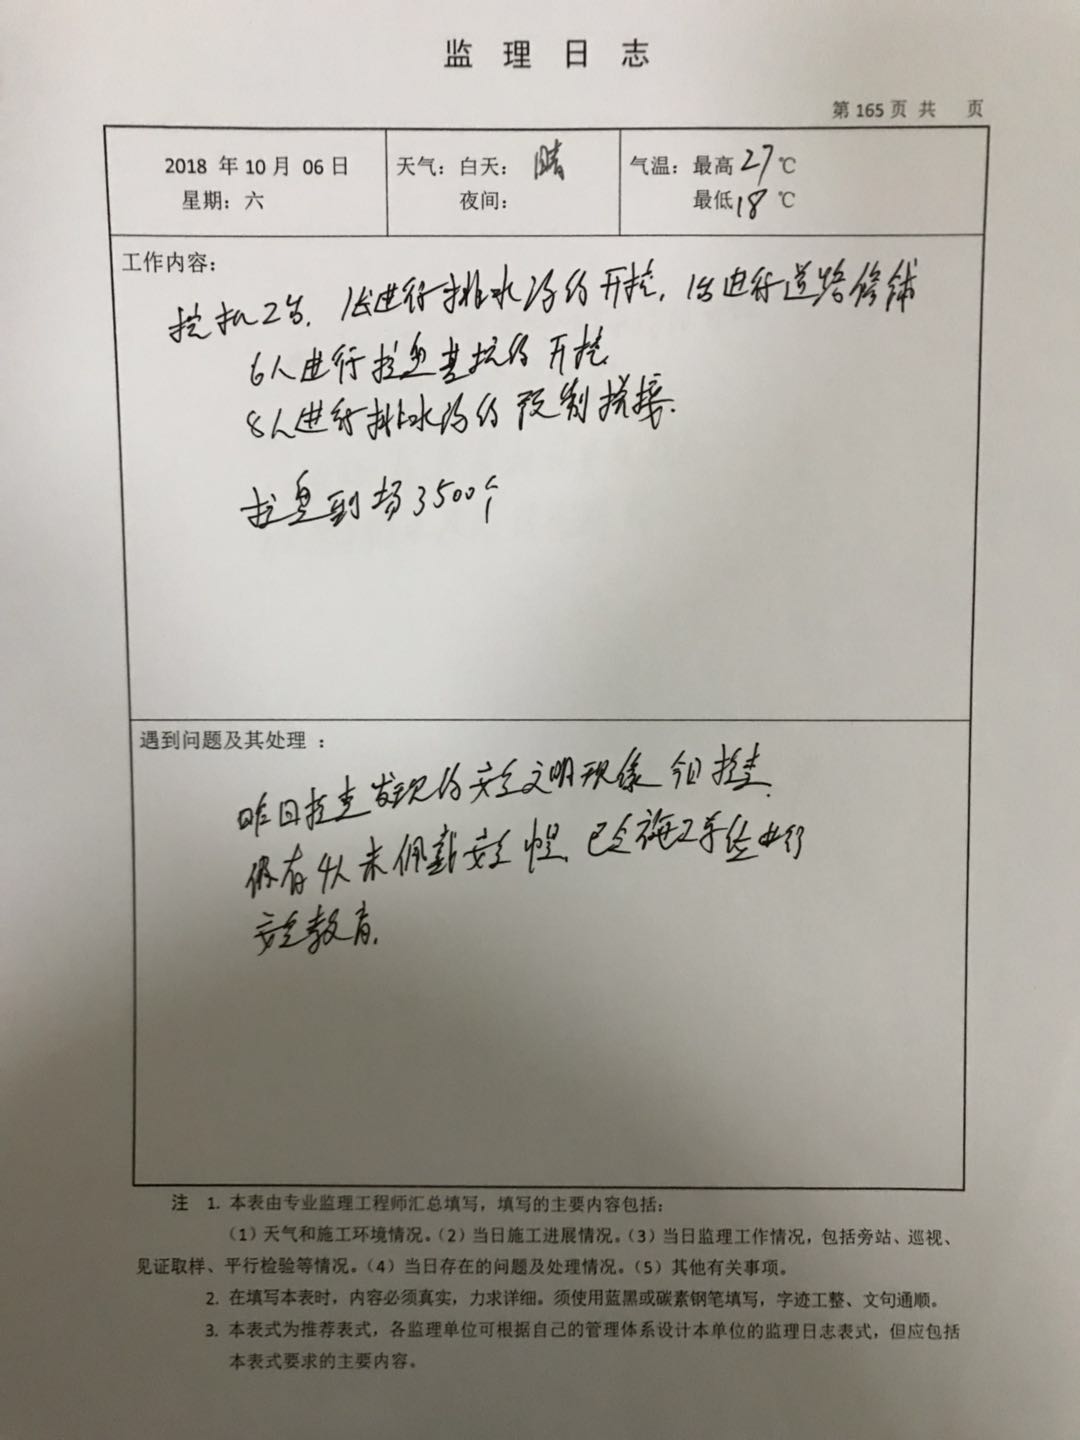 监理日志
第 165 页 共 页
2018 年 10 月 06 日
星期：六
天气：白天：晴
夜间：
气温：最高 27 ℃
最低 18 ℃
工作内容：
挖机2台，1台进行排水沟的开挖，1台进行道路修铺
6人进行拉盘基坑的开挖
8人进行排水沟的预制拼接.
拉盘到场3500个
遇到问题及其处理 ：
昨日检查发现的安全文明现像 今日检查
仍有4人未佩戴安全帽，已令施工单位进行
安全教育.
注 1. 本表由专业监理工程师汇总填写，填写的主要内容包括：
（1）天气和施工环境情况。（2）当日施工进展情况。（3）当日监理工作情况，包括旁站、巡视、
见证取样、平行检验等情况。（4）当日存在的问题及处理情况。（5）其他有关事项。
2. 在填写本表时，内容必须真实，力求详细。须使用蓝黑或碳素钢笔填写，字迹工整、文句通顺。
3. 本表式为推荐表式，各监理单位可根据自己的管理体系设计本单位的监理日志表式，但应包括
本表式要求的主要内容。